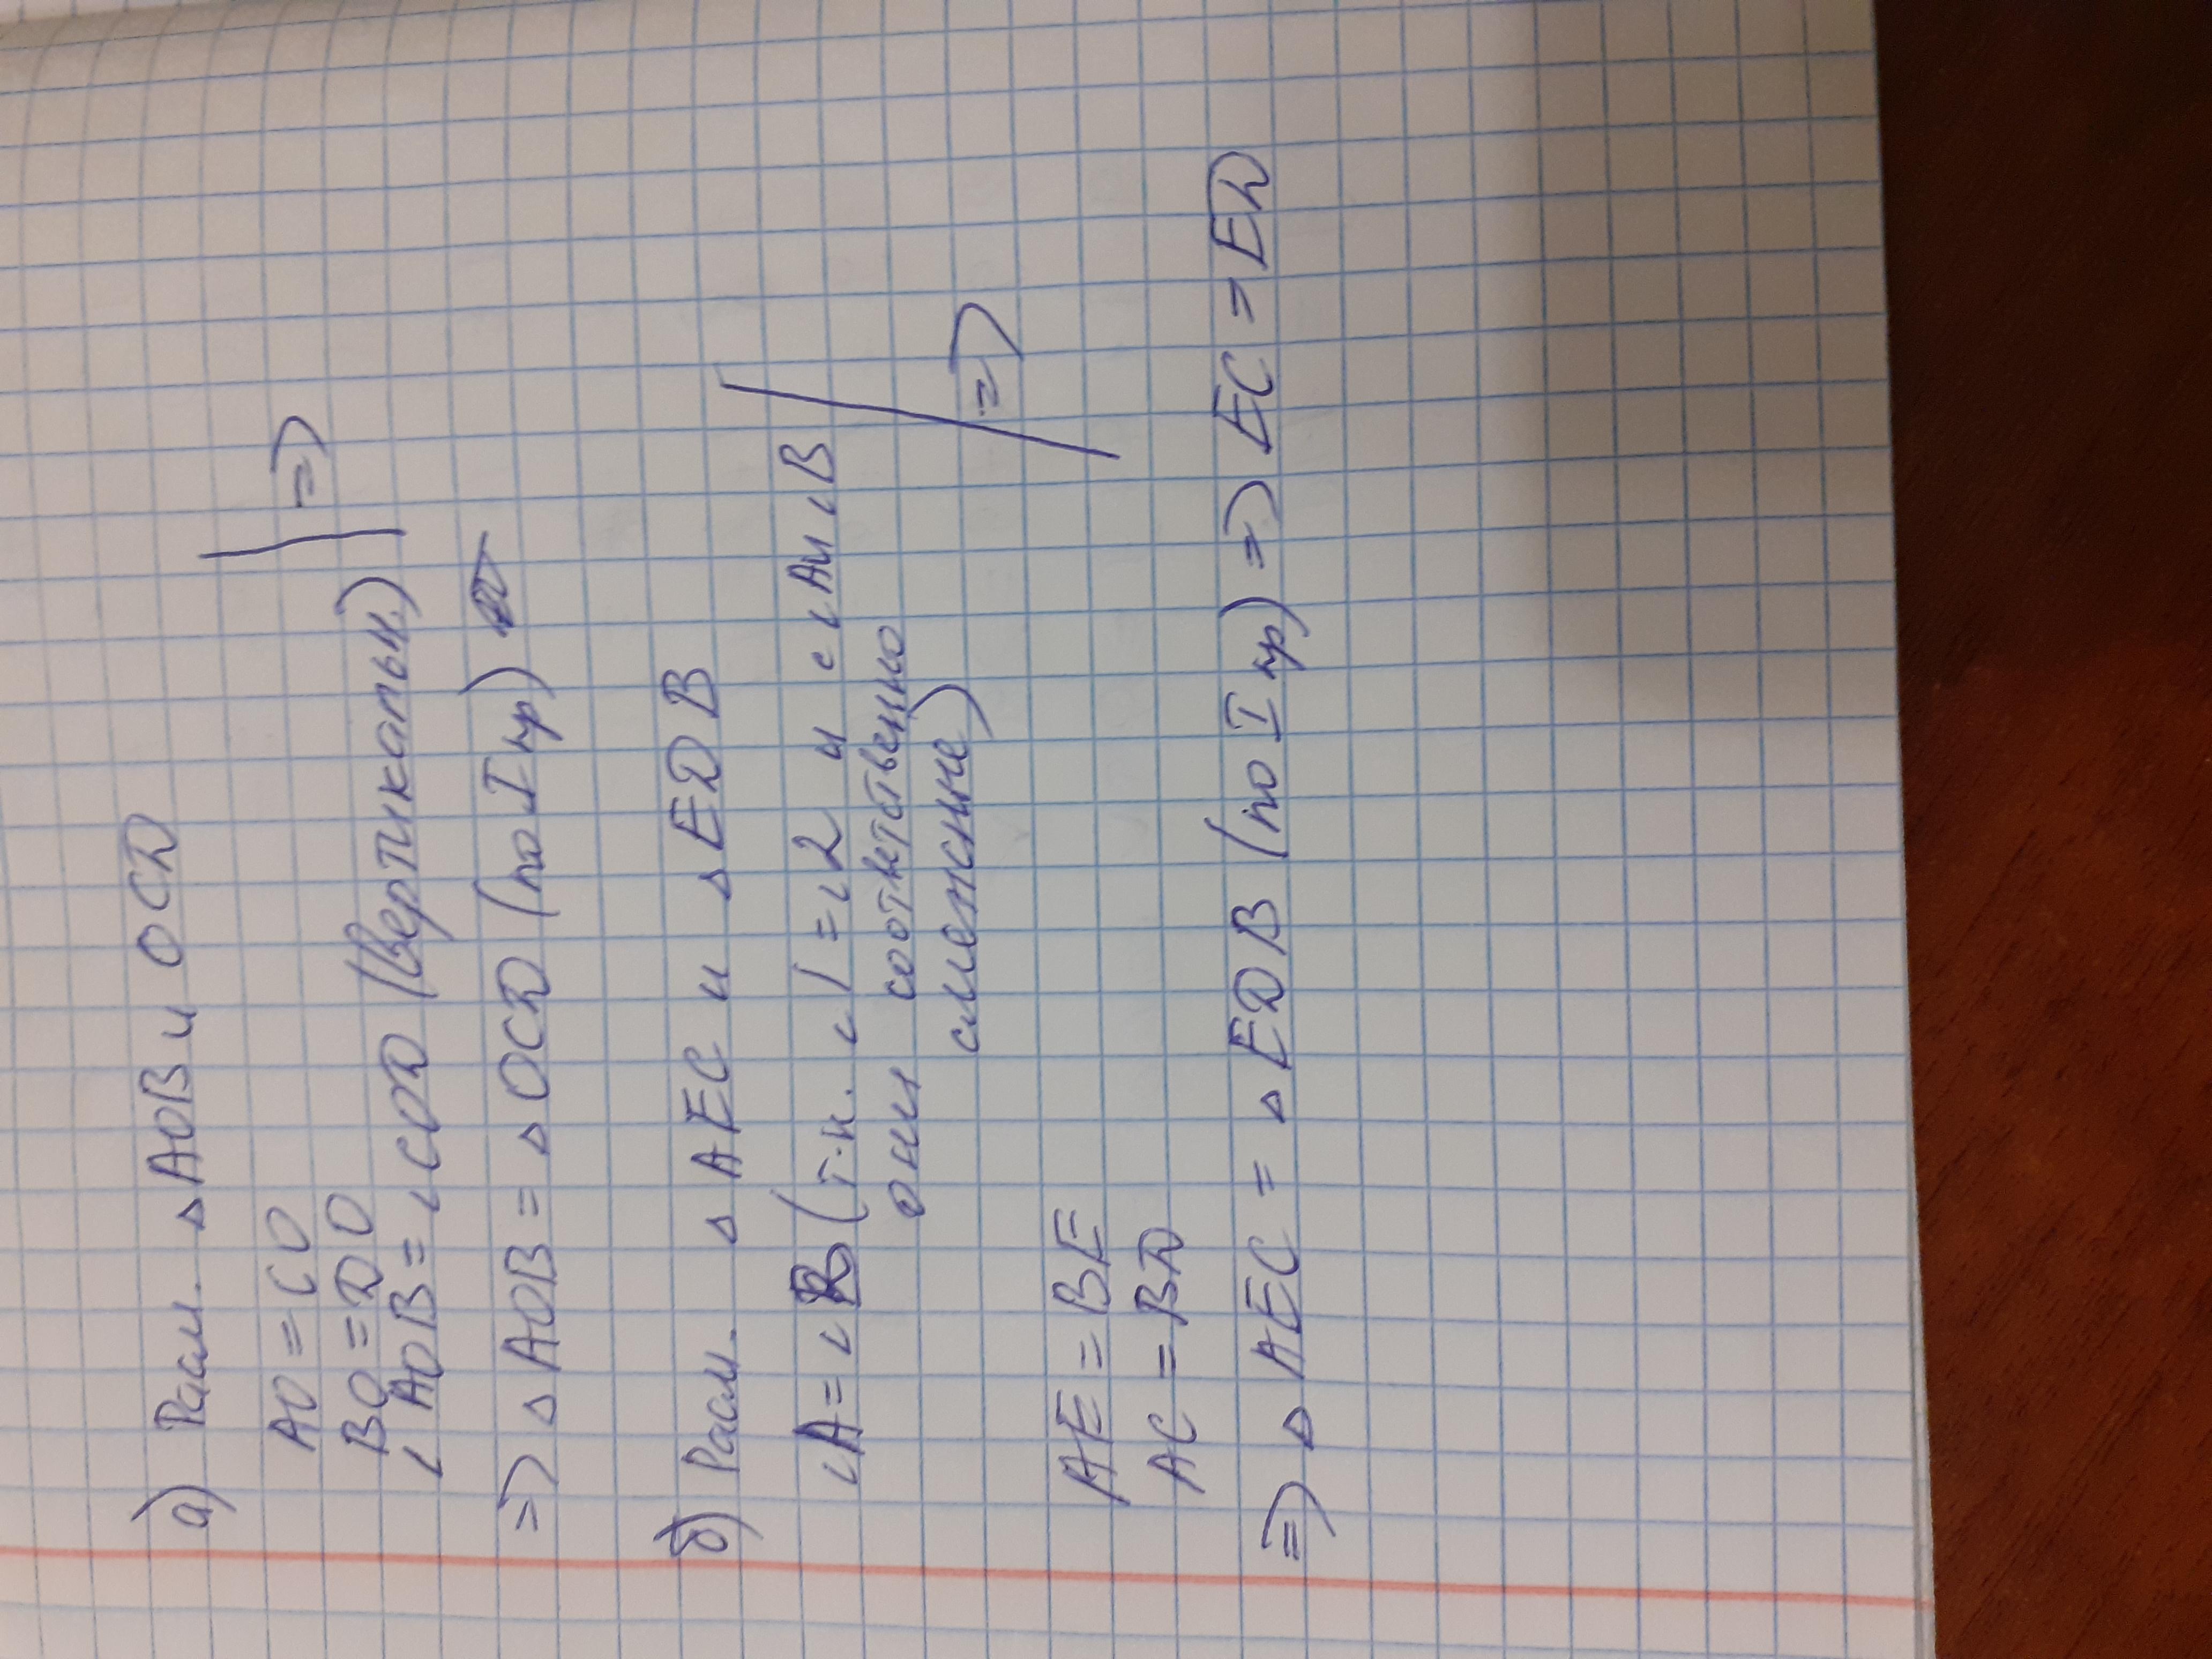 а) Расм. △AOB и OCD
AO = CO
BO = DO
∠AOB = ∠COD (вертикальн.) | =>
=> △AOB = △OCD (по I пр)
б) Расм. △AEC и △EDB
∠A = ∠B (т.к. ∠1 = ∠2 и с ∠A и ∠B
они соответственно
смежные)
AE = BE | =>
AC = BD
=> △AEC = △EDB (по I пр) => EC = ED